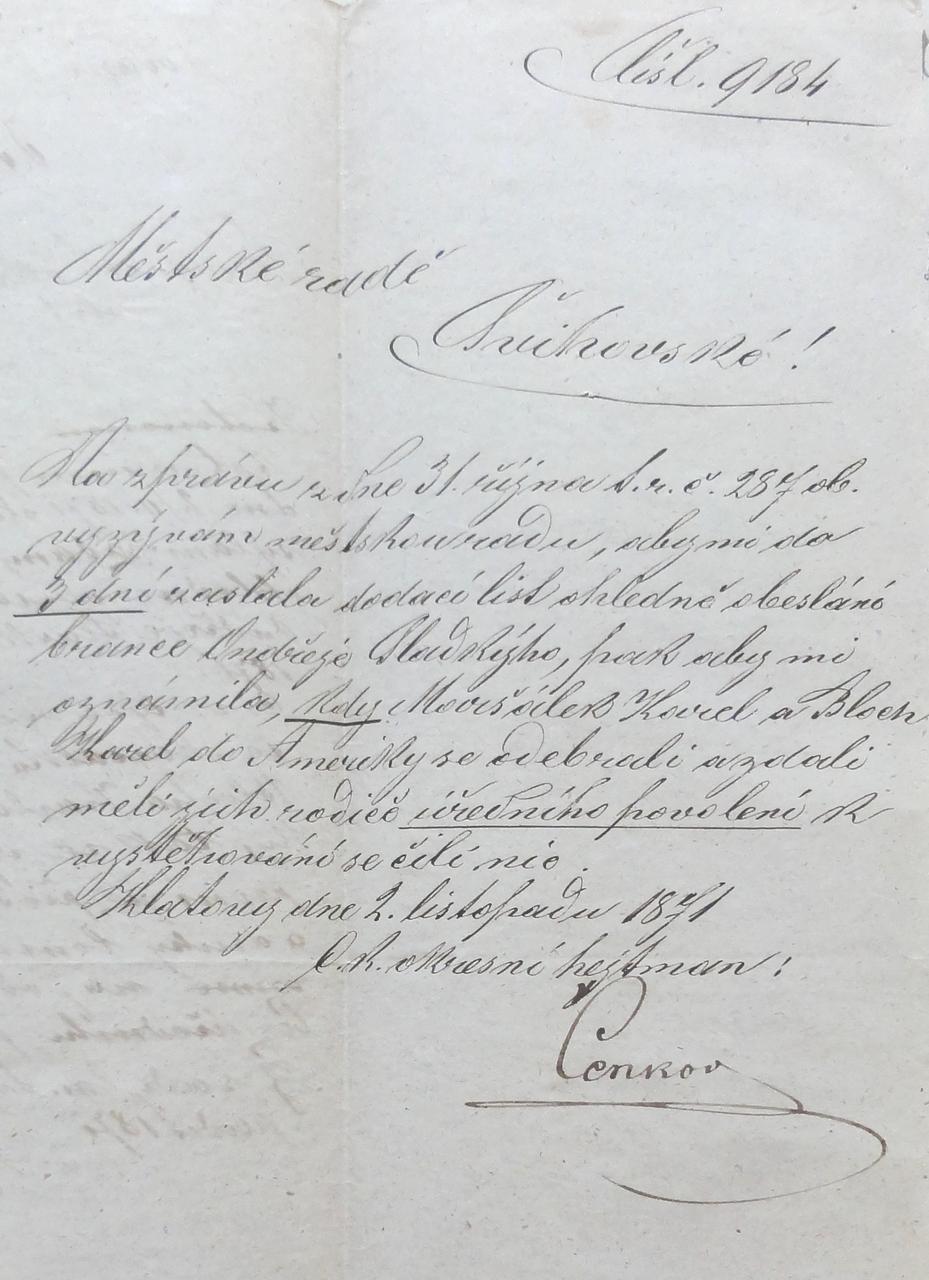 Čísl. 9184
Městské radě
Švihovské!
Na zprávu z dne 31. října t. r. č. 287 ob.
vyzývám městskou radu, aby mi do
3 dní zaslala dodací list ohledně obeslání
brance Ondřeje Sladkýho, pak aby mi
oznámila, kdy Maršálek Karel a Bloch
Karel do Ameriky se odebrali a zdali
měli jich rodiče úředního povolení k
vystěhování se čili nic.
Klatovy dne 2. listopadu 1871
C. k. okresní hejtman:
Čenkov